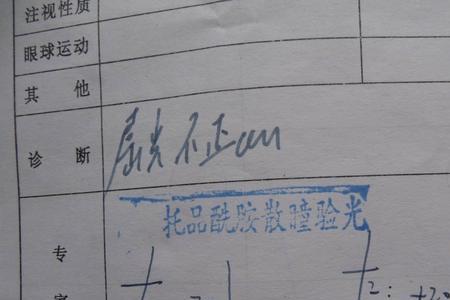 注视性质
眼球运动
其他
诊断 屈光不正ou
托品酰胺散瞳验光
专
家